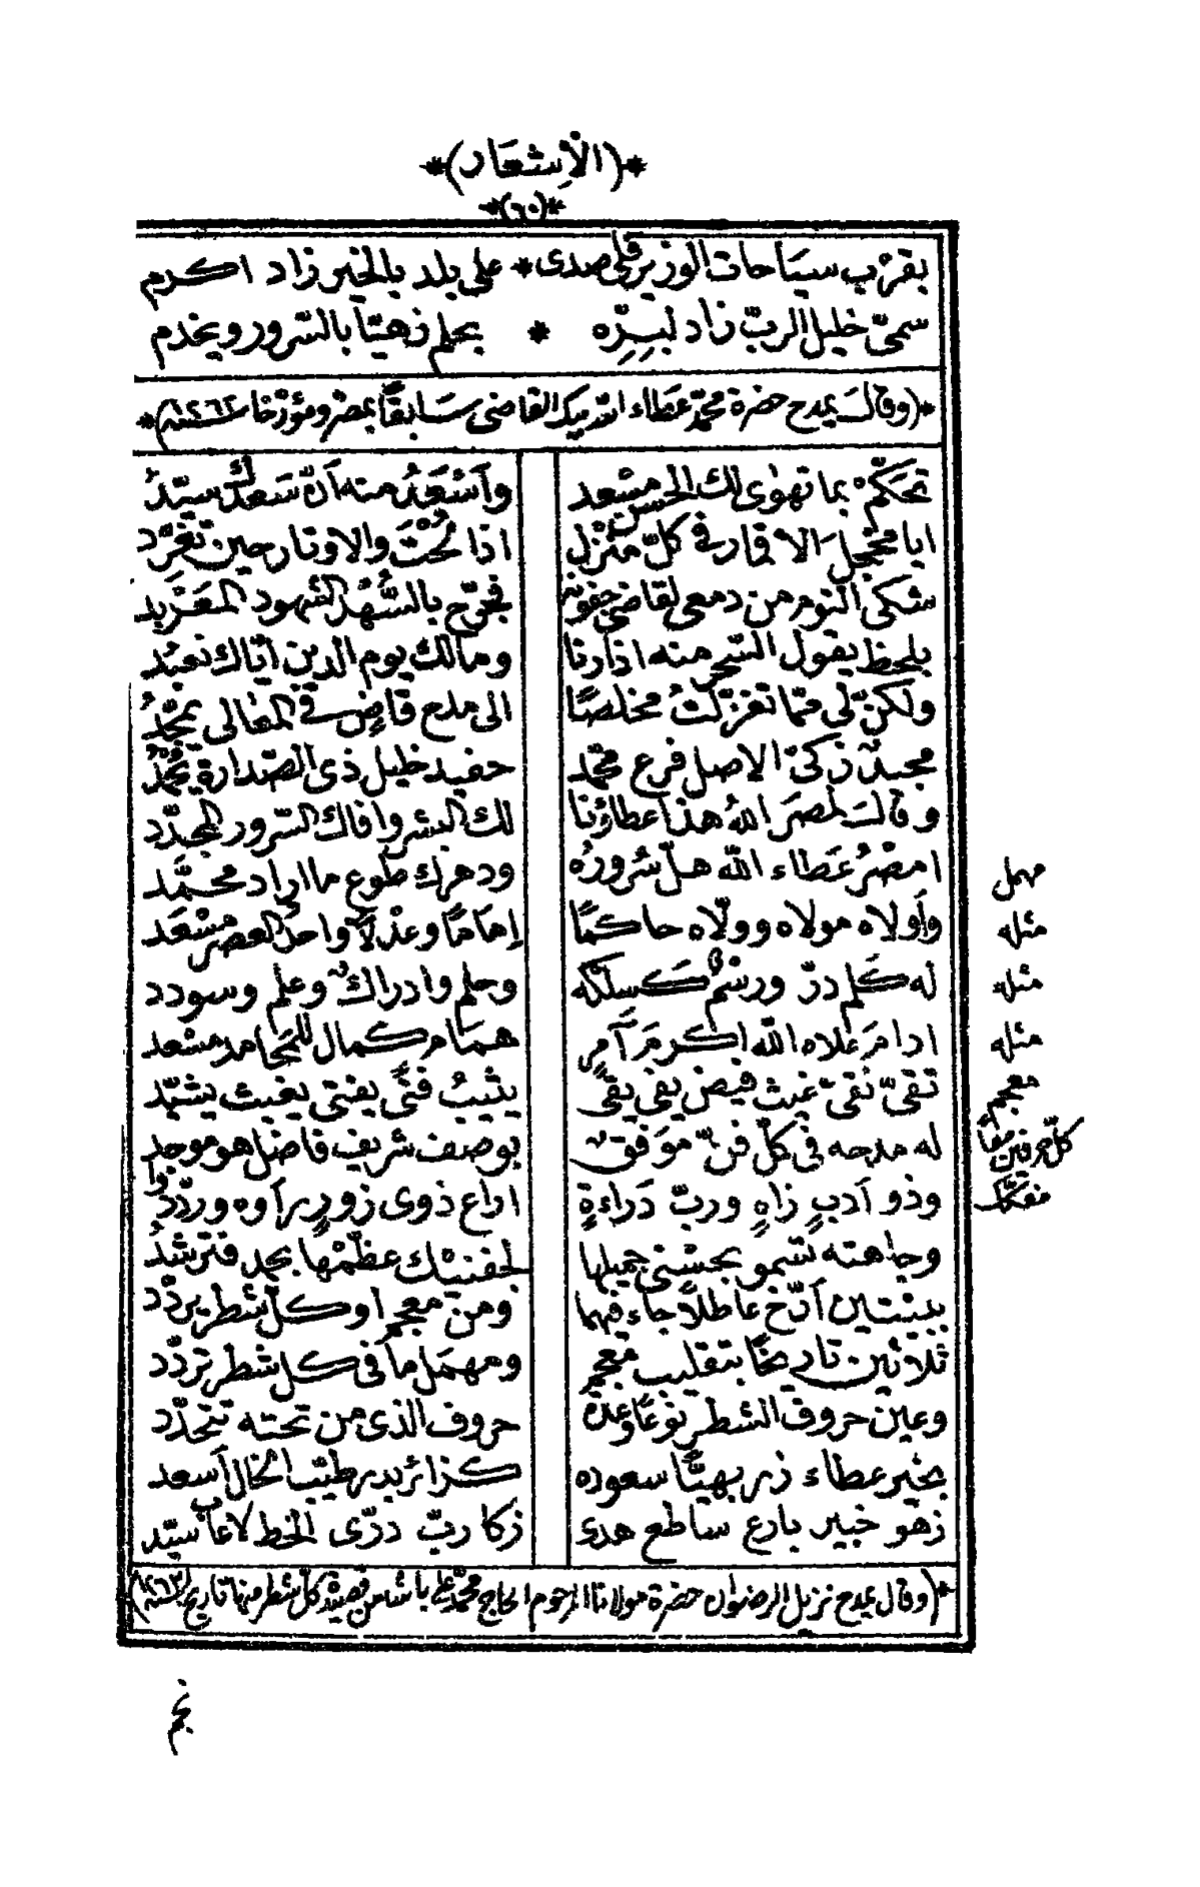 *(الأشعار)*
*(٦٠)*
بقرب سياحات الوزير قلى صدى * على بلد بالخير زاد اكرم
سمىّ خليل الربّ زاد لبِرِّه * بحلم زهيّا بالسّرور ويخدم
*(وقال يمدح حضرة محمّد عطاء الله بيك القاضى سابقًا بمصر ومؤرّخا سنة ١٢٦٢)*
تحكّم بما تهوى لك الحسن مسعد وأسْعَدُ منه أنّ سَعْدك سيّدُ
ايا مخجل الاقمار فى كلّ منزل اذا لُحْتَ والاوتار حين تغرّد
شكى النوم من دمعى لقاضى جفونه فجرّح بالسُّهْد الشهود المعَرْبد
بلحظ يقول السّحر منه اذا رنا ومالك يوم الدين ايّاك نعبُد
ولكنّ لى ممّا تغزّلتُ مخلصًا الى مدح قاضٍ فى المعالى يمجَّدُ
مجيدٌ زكىّ الاصل فرع محمّد حفيد خليل ذى الصّدارة يُحْمَدُ
وقالت لمصرَ اللهُ هذا عطاؤنا لك البشر وافاك السّرور المجدّد
امصْرُ عَطاء الله هلّ سُرورُه ودهرك طوع ما اراد محمَّد
وأولاه مولاه وولّاه حاكمًا إمَامًا وعدْلاً واحدُ العصر مسْعَد
له كَلم درّ ورسْمٌ كَسلكه وحلم وادراكٌ وعلم وسودد
ادامَ عُلاه الله اكرمَ آمرٍ همَام كمال للمَحامد مسْعد
تقىّ نقىّ غيث فيض يفى يقى يثيبُ فتًى يفتى يغيث يشيّد
له مدحه فى كلّ فنّ موفّق بوصف شريف فاضل هو موحد
وذو أدبٍ زاهٍ وربّ دَراءةٍ اداع ذوى زورٍ رأوه وردّدوا
وجاهته تسمو بحسْنى جميلها لحفنيْك عظّمْها بحمد فترشدُ
ببيْتين أرّخ عاطلاً جاء فيهما ومن معجم او كلّ شطر يردّد
ثلاثين تاريخًا بتقليب معجم ومهمل ما فى كلّ شطر تردّد
وعين حروف الشطر نوعًا وعدة حروف الذى من تحته تتحدّد
بخير عطاء زر بهيًّا سعوده كزائر بدر طيّب الخال أسعد
زهو خبير بارع ساطع هدى زكا ربّ درّى الخط لاعاب سيّد
مهمل
مثله
مثله
مثله
معجم
كلّ حرفين معًا
مفكّك
*(وقال يمدح نزيل الرضوان حضرة مولانا المرحوم الحاج محمّد على باشا من قصيدة كلّ شطر منها تاريخ سنة ١٢٦٣)*
نجم